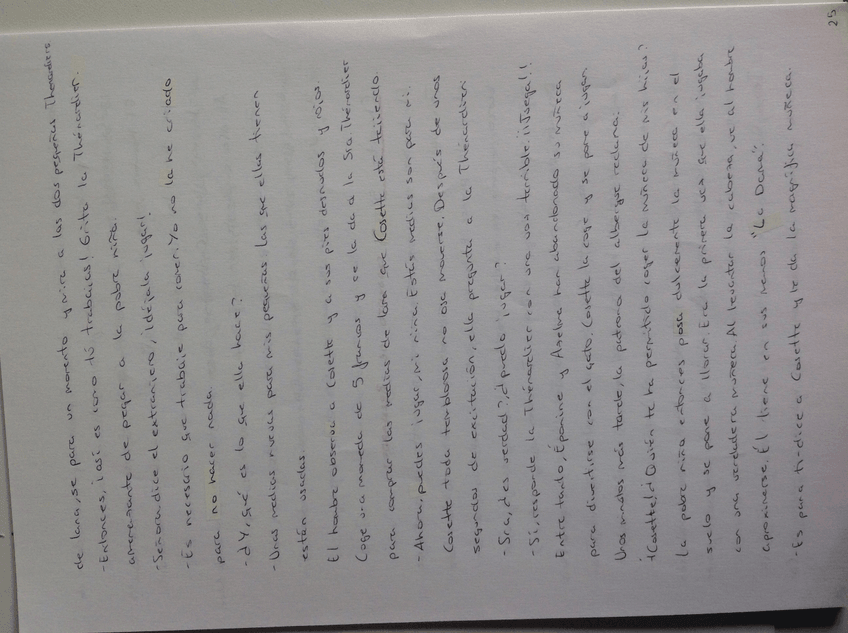 de lana, se para un momento y mira a las dos pequeñas Thenardiers
- Entonces, ¡así es como tú trabajas! Grita la Thénardier.
amenazante de pegar a la pobre niña.
- Señora, dice el extranjero, ¡déjala jugar!
- Es necesario que trabaje para comer. Yo no la he criado
para no hacer nada.
- ¿Y, qué es lo que ella hace?
- Unas medias nuevas para mis pequeñas las que ellas tienen
están usadas.
El hombre observa a Cosette y a sus pies desnudos y rojos.
Coge una moneda de 5 francos y se la da a la Sra. Thénardier
para comprar las medias de lana que Cosette está tejiendo.
- Ahora, puedes jugar, mi niña. Estás medias son para mi.
Cosette toda temblorosa no osa moverse. Después de unos
segundos de excitación, ella pregunta a la Thénardier:
- Sra, ¿es verdad?, ¿puedo jugar?
- Sí, responde la Thénardier con una voz terrible. ¡¡Juega!!
Entre tanto, Éponine y Aselma han abandonado su muñeca
para divertirse con el gato. Cosette la coge y se pone a jugar.
Unos minutos más tarde, la patrona del albergue reclama:
¡Cosette! ¿Quién te ha permitido coger la muñeca de mis hijas?
La pobre niña entonces posa dulcemente la muñeca en el
suelo y se pone a llorar. Era la primera vez que ella jugaba
con una verdadera muñeca. Al levantar la cabeza, ve al hombre
aproximarse. Él tiene en sus manos "La Dama".
- Es para ti - dice a Cosette y le da la magnífica muñeca.
25